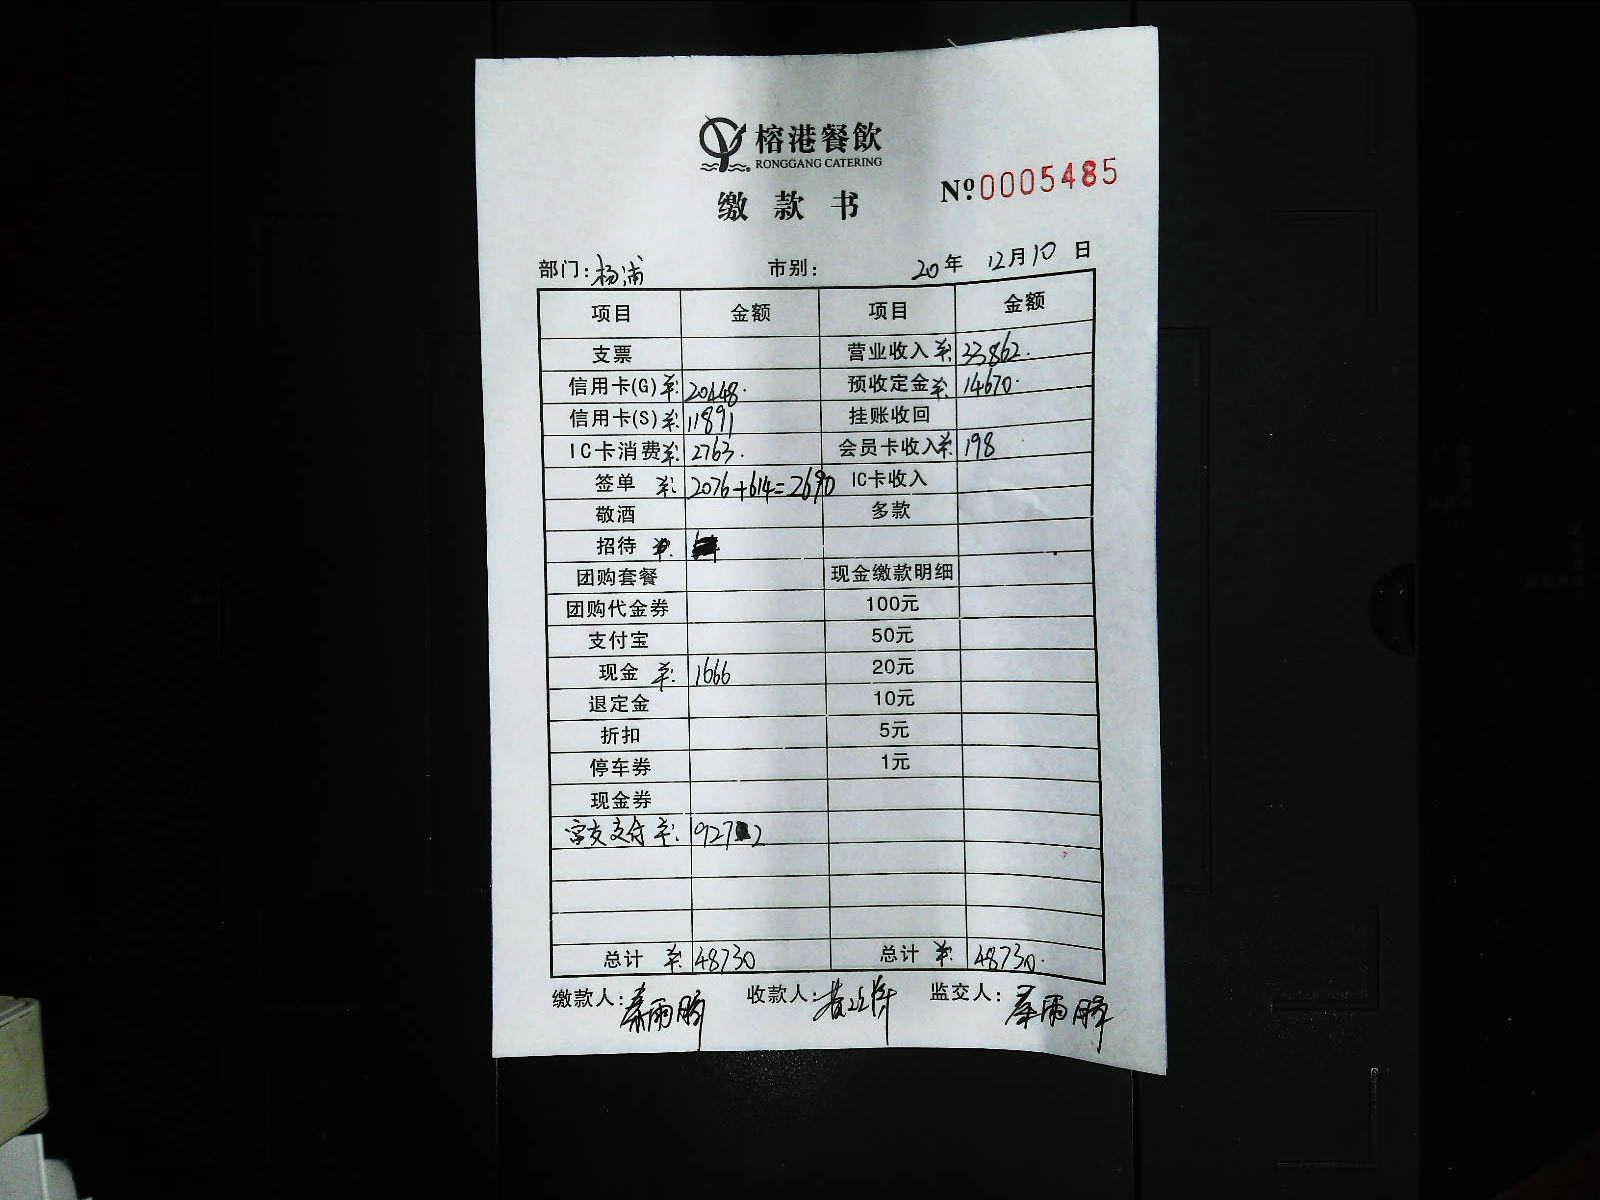 榕港餐飲
RONGGANG CATERING
缴款书
Nº:0005485
部门:杨浦 市别: 20年 12月10日
项目 金额 项目 金额
支票 营业收入 ¥: 33862.
信用卡(G) ¥: 20448. 预收定金 ¥: 14670.
信用卡(S) ¥: 11891 挂账收回
IC卡消费 ¥: 2763. 会员卡收入 ¥: 198
签单 ¥: 2076+614=2690 IC卡收入
敬酒 多款
招待 ¥:
团购套餐 现金缴款明细
团购代金券 100元
支付宝 50元
现金 ¥: 1666 20元
退定金 10元
折扣 5元
停车券 1元
现金券
支付 ¥: 9272
总计 ¥: 48730 总计 ¥: 48730.
缴款人: 收款人: 监交人: